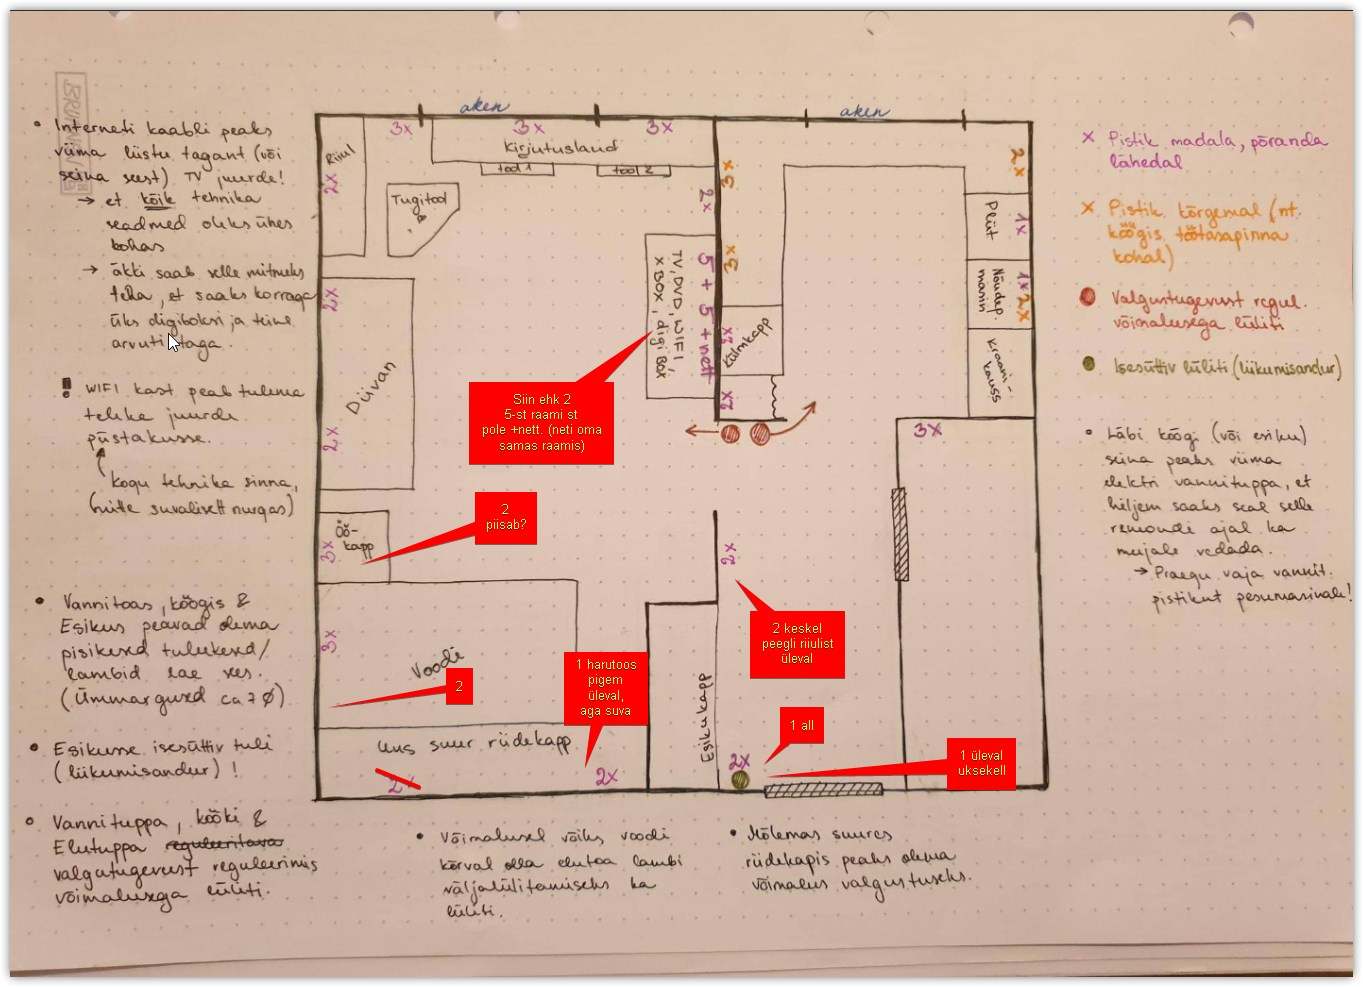 BRUNNEN
• Interneti kaabli peaks
viima liistu tagant (või
seina seest) TV juurde!
→ et kõik tehnika
seadmed oleks ühes
kohas
→ äkki saab selle mitmeks
teha, et saaks korraga
üks digiboksi ja teine
arvuti taga.
! WIFI kast peab tulema
teleka juurde
püstakusse.
kogu tehnika sinna,
(mitte suvalisett nurgas)
• Vannitoas, köögis &
Esikus peavad olema
pisikesed tulukesed/
lambid lae sees.
(Ümmargused ca 7 Ø)
• Esikusse isesüttiv tuli
(liikumisandur)!
• Vannituppa, kööki &
Elutuppa reguleeritava
valgutugevust reguleerimis
võimalusega lüliti.
aken
aken
3x
3x
3x
Riiul
2x
Kirjutuslaud
tool 1
tool 2
Tugitool
2x
3x
3x
2x
Pliit
1x
Nõudep.
masin
1x
2x
Kraani-
kauss
TV, DVD, WIFI,
X BOX, digi Box
5 + 5 + nett
2x
Külmkapp
2x
2x
Diivan
2x
Siin ehk 2
5-st raami st
pole +nett. (neti oma
samas raamis)
3x
2
piisab?
Öö-
kapp
3x
2x
3x
Voodi
2
2 keskel
peegli riiulist
üleval
1 harutoos
pigem
üleval,
aga suva
Esikukapp
1 all
Uus suur riidekapp
2x
2x
2x
1 üleval
uksekell
• Võimalusel võiks voodi
kõrval olla elutoa lambi
väljalülitamiseks ka
lüliti.
• Mõlemas suures
riidekapis peaks olema
võimalus valgustuseks.
x Pistik madala, põranda
lähedal
x Pistik kõrgemal (nt.
köögis töötasapinna
kohal)
Valgustugevust regul.
võimalusega lüliti
Isesüttiv lüliti (liikumisandur)
• Läbi köögi (või esiku)
seina peaks viima
elektri vannituppa, et
hiljem saaks seal selle
remondi ajal ka
mujale vedada.
→ Praegu vaja vannit.
pistikut pesumasinale!